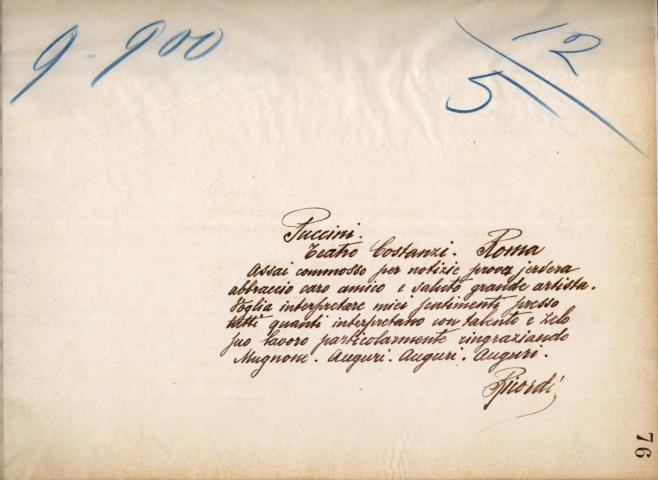 9-900
12/5
Puccini.
Teatro Costanzi. Roma
Assai commosso per notizie prova jersera
abbraccio caro amico e saluto grande artista.
Voglia interpretare miei sentimenti presso
tutti quanti interpretano con talento e zelo
suo lavoro particolarmente ringraziando
Mugnone. Auguri. Auguri. Auguri.
Ricordi
76